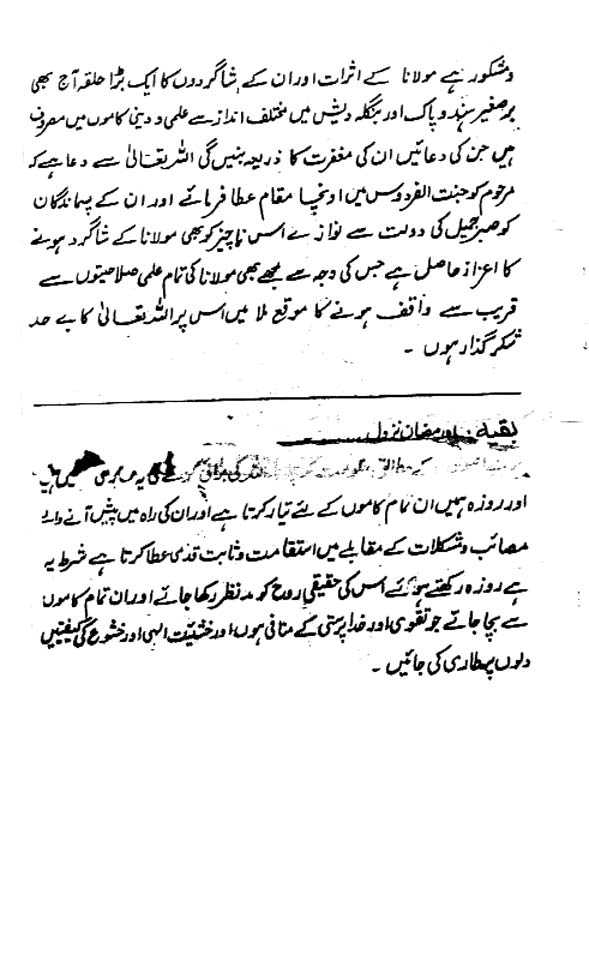 و مشکور ہے مولانا کے اثرات اور ان کے شاگردوں کا ایک بڑا حلقہ آج بھی
برصغیر ہند و پاک اور بنگلہ دیش میں مختلف انداز سے علمی و دینی کاموں میں مصروف
ہیں جن کی دعائیں ان کی مغفرت کا ذریعہ بنیں گی اللہ تعالیٰ سے دعا ہے کہ
مرحوم کو جنت الفردوس میں اونچا مقام عطا فرمائے اور ان کے پسماندگان
کو صبر جمیل کی دولت سے نوازے اس ناچیز کو بھی مولانا کے شاگرد ہونے
کا اعزاز حاصل ہے جس کی وجہ سے مجھے بھی مولانا کی تمام علمی صلاحیتوں سے
قریب سے واقف ہونے کا موقع ملا میں اس پر اللہ تعالیٰ کا بے حد
شکر گذار ہوں ۔
بقیہ: اور رمضان نزول
کے مطابق
اور روزہ ہمیں ان تمام کاموں کے لئے تیار کرتا ہے اور ان کی راہ میں پیش آنے والے
مصائب و مشکلات کے مقابلے میں استقامت و ثابت قدمی عطا کرتا ہے شرط یہ
ہے روزہ رکھتے ہوئے اس کی حقیقی روح کو مد نظر رکھا جائے اور ان تمام کاموں
سے بچا جائے جو تقویٰ اور خدا پرستی کے منافی ہوں اور خشیت الہی اور خشوع کی کیفیتیں
دلوں پہ طاری کی جائیں ۔